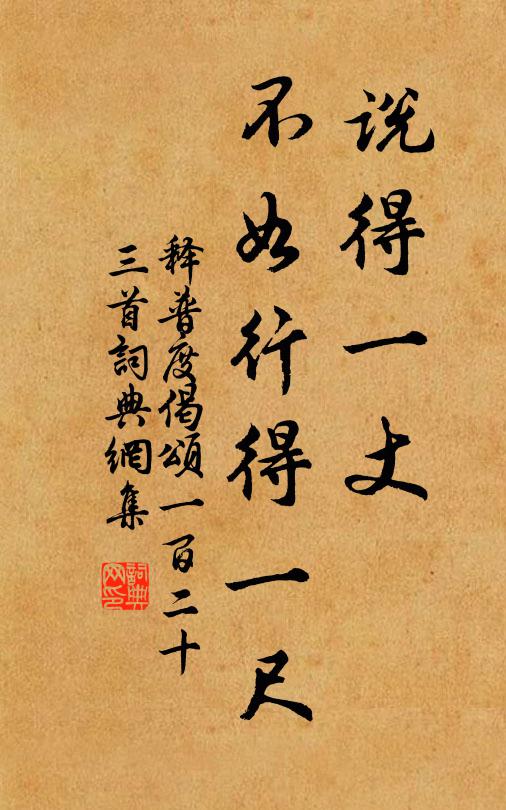 說得一丈
不如行得一尺
释普度偈頌一百二十
三首詞典網集
詞典
网印